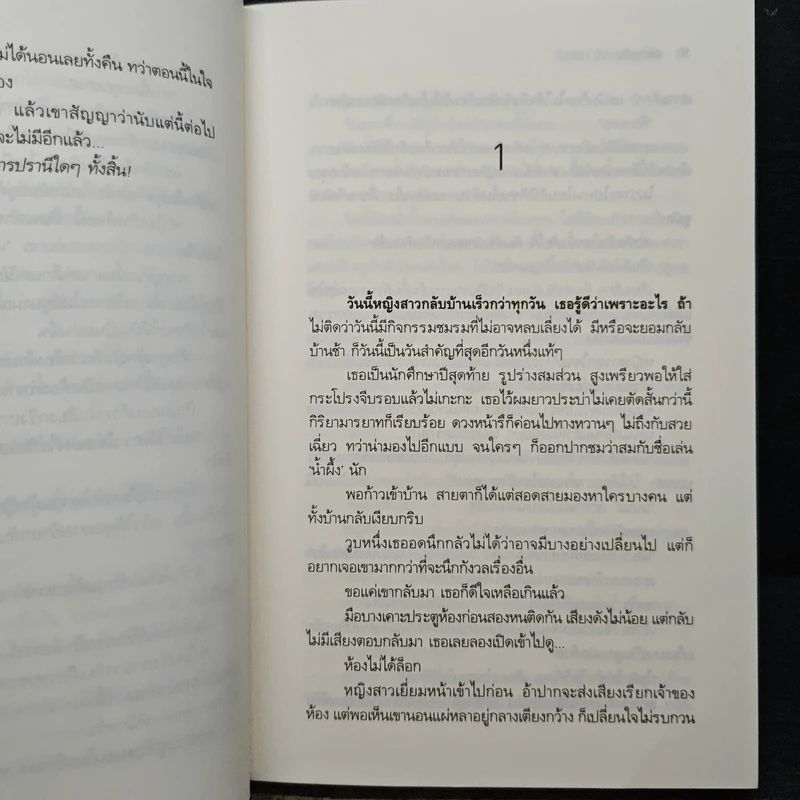 ม่ได้นอนเลยทั้งคืน ทว่าตอนนี้ในใจ
อง
แล้วเขาสัญญาว่านับแต่นี้ต่อไป
จะไม่มีอีกแล้ว...
ารปรานีใดๆ ทั้งสิ้น!
1
วันนี้หญิงสาวกลับบ้านเร็วกว่าทุกวัน เธอรู้ดีว่าเพราะอะไร ถ้า
ไม่ติดว่าวันนี้มีกิจกรรมชมรมที่ไม่อาจหลบเลี่ยงได้ มีหรือจะยอมกลับ
บ้านช้า ก็วันนี้เป็นวันสำคัญที่สุดอีกวันหนึ่งแท้ๆ
เธอเป็นนักศึกษาปีสุดท้าย รูปร่างสมส่วน สูงเพรียวพอให้ใส่
กระโปรงจีบรอบแล้วไม่เกะกะ เธอไว้ผมยาวประบ่าไม่เคยตัดสั้นกว่านี้
กิริยามารยาทก็เรียบร้อย ดวงหน้ารึก็ค่อนไปทางหวานๆ ไม่ถึงกับสวย
เฉี่ยว ทว่าน่ามองไปอีกแบบ จนใครๆ ก็ออกปากชมว่าสมกับชื่อเล่น
'น้ำผึ้ง' นัก
พอก้าวเข้าบ้าน สายตาก็ได้แต่สอดสายมองหาใครบางคน แต่
ทั้งบ้านกลับเงียบกริบ
วูบหนึ่งเธออดนึกกลัวไม่ได้ว่าอาจมีบางอย่างเปลี่ยนไป แต่ก็
อยากเจอเขามากกว่าที่จะนึกกังวลเรื่องอื่น
ขอแค่เขากลับมา เธอก็ดีใจเหลือเกินแล้ว
มือบางเคาะประตูห้องก่อนสองหนติดกัน เสียงดังไม่น้อย แต่กลับ
ไม่มีเสียงตอบกลับมา เธอเลยลองเปิดเข้าไปดู...
ห้องไม่ได้ล็อก
หญิงสาวเยี่ยมหน้าเข้าไปก่อน อ้าปากจะส่งเสียงเรียกเจ้าของ
ห้อง แต่พอเห็นเขานอนแผ่หลาอยู่กลางเตียงกว้าง ก็เปลี่ยนใจไม่รบกวน